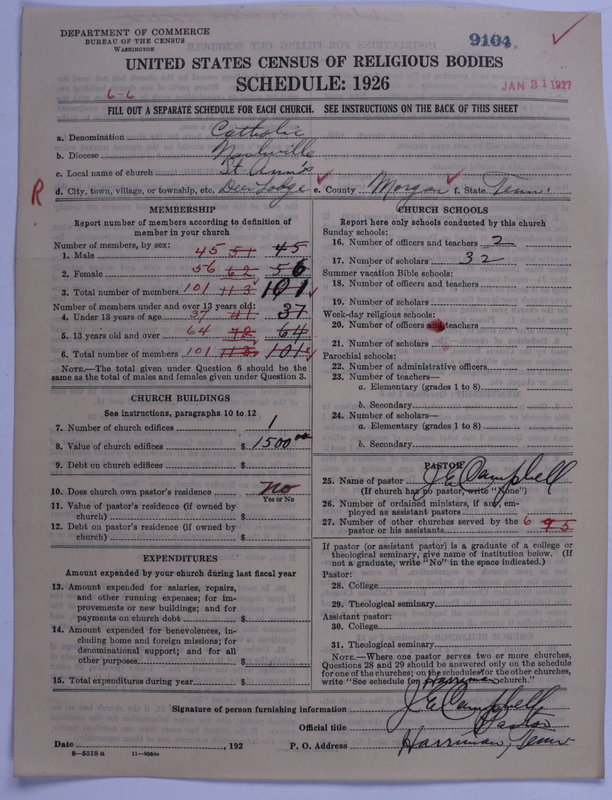 DEPARTMENT OF COMMERCE
BUREAU OF THE CENSUS
WASHINGTON
9104
UNITED STATES CENSUS OF RELIGIOUS BODIES
SCHEDULE: 1926
JAN 31 1927
6-6
FILL OUT A SEPARATE SCHEDULE FOR EACH CHURCH. SEE INSTRUCTIONS ON THE BACK OF THIS SHEET
a. Denomination Catholic
b. Diocese Nashville
c. Local name of church St Ann's
R
d. City, town, village, or township, etc. Deer Lodge e. County Morgan f. State Tenn.
MEMBERSHIP
Report number of members according to definition of
member in your church
Number of members, by sex:
1. Male 45 51 45
2. Female 56 62 56
3. Total number of members 101 113 101
Number of members under and over 13 years old:
4. Under 13 years of age 37 41 37
5. 13 years old and over 64 72 64
6. Total number of members 101 113 101
NOTE.—The total given under Question 6 should be the
same as the total of males and females given under Question 3.
CHURCH BUILDINGS
See instructions, paragraphs 10 to 12
7. Number of church edifices 1
8. Value of church edifices $ 1500 00
9. Debt on church edifices $
10. Does church own pastor's residence No
Yes or No
11. Value of pastor's residence (if owned by
church) $
12. Debt on pastor's residence (if owned by
church) $
EXPENDITURES
Amount expended by your church during last fiscal year
13. Amount expended for salaries, repairs,
and other running expenses; for im-
provements or new buildings; and for
payments on church debt $
14. Amount expended for benevolences, in-
cluding home and foreign missions; for
denominational support; and for all
other purposes $
15. Total expenditures during year $
CHURCH SCHOOLS
Report here only schools conducted by this church
Sunday schools:
16. Number of officers and teachers 2
17. Number of scholars 32
Summer vacation Bible schools:
18. Number of officers and teachers
19. Number of scholars
Week-day religious schools:
20. Number of officers and teachers
21. Number of scholars
Parochial schools:
22. Number of administrative officers
23. Number of teachers—
a. Elementary (grades 1 to 8)
b. Secondary
24. Number of scholars—
a. Elementary (grades 1 to 8)
b. Secondary
PASTOR
25. Name of pastor J E Campbell
(If church has no pastor, write "None")
26. Number of ordained ministers, if any, em-
ployed as assistant pastors
27. Number of other churches served by the
pastor or his assistants 6
If pastor (or assistant pastor) is a graduate of a college or
theological seminary, give name of institution below. (If
not a graduate, write "No" in the space indicated.)
Pastor:
28. College
29. Theological seminary
Assistant pastor:
30. College
31. Theological seminary
NOTE.—Where one pastor serves two or more churches,
Questions 28 and 29 should be answered only on the schedule
for one of the churches; on the schedules for the other churches,
write "See schedule for Harriman church."
Signature of person furnishing information J E Campbell
Official title Pastor
Date , 192 P. O. Address Harriman, Tenn